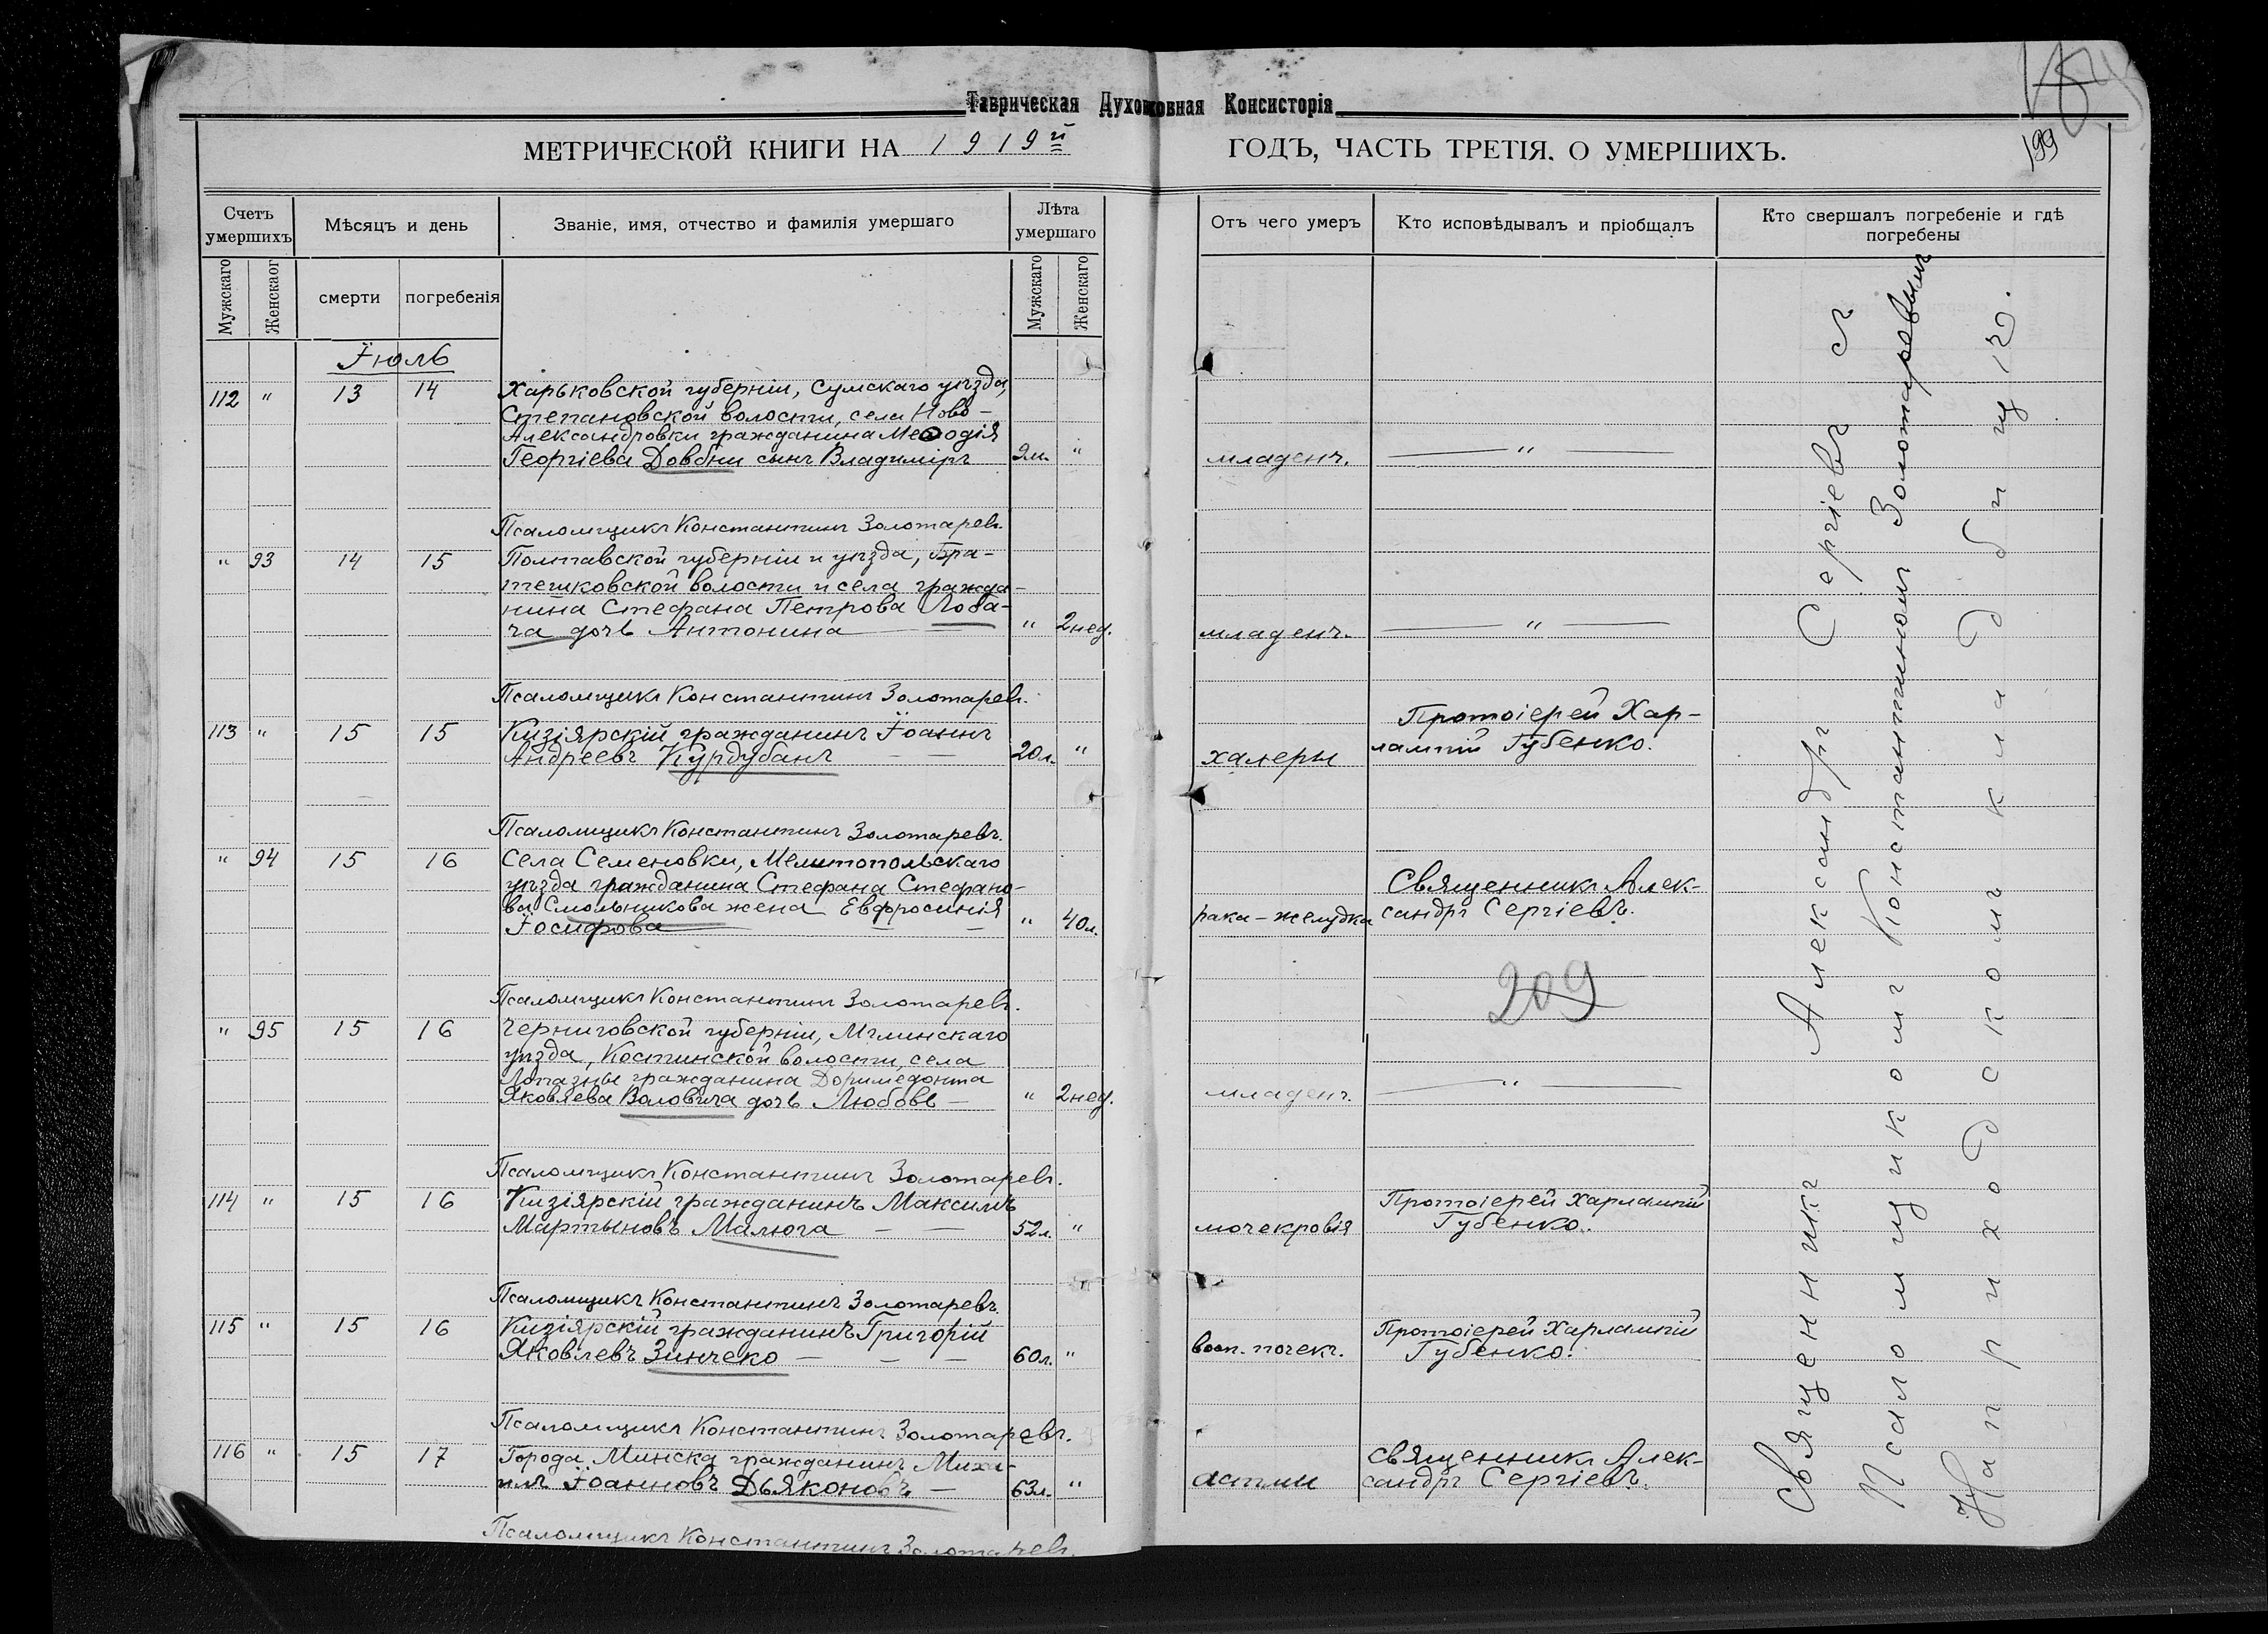 Таврическая Духовная Консисторія
МЕТРИЧЕСКОЙ КНИГИ НА 1919й ГОДЪ, ЧАСТЬ ТРЕТІЯ. О УМЕРШИХЪ.
199
Счетъ умершихъ
Мѣсяцъ и день
Званіе, имя, отчество и фамилія умершаго
Лѣта умершаго
Отъ чего умеръ
Кто исповѣдывалъ и пріобщалъ
Кто свершалъ погребеніе и гдѣ погребены
Мужскаго
Женскаог
смерти
погребенія
Мужскаго
Женскаго
Іюль
112 " 13 14 Харьковской губерніи, Сумскаго уѣзда,
Степановской волости, села Ново-
Александровки гражданина Меѳодія
Георгіева Довбни сынъ Владиміръ 9м. " младенч. — " —
Псаломщикъ Константинъ Золотаревъ.
" 93 14 15 Полтавской губерніи и уѣзда, Бра-
тешковской волости и села гражда-
нина Стефана Петрова Лоба-
ча дочь Антонина — " 2 нед. младенч. — " —
Псаломщикъ Константинъ Золотаревъ.
113 " 15 15 Кизіярскій гражданинъ Іоаннъ
Андреевъ Курдубанъ — — 20 л. " халеры
Протоіерей Хар-
лампій Губенко.
Псаломщикъ Константинъ Золотаревъ.
" 94 15 16 Села Семеновки, Мелитопольскаго
уѣзда гражданина Стефана Стефано-
ва Смольникова жена Евфросинія
Іосифова — — " 40 л. рака-желудка
Священникъ Алек-
сандръ Сергіевъ.
209
Псаломщикъ Константинъ Золотаревъ.
" 95 15 16 Черниговской губерніи, Мглинскаго
уѣзда, Костинской волости, села
Лопазны гражданина Доримедонта
Яковлева Воловича дочь Любовь — " 2 нед. младенч. — " —
Псаломщикъ Константинъ Золотаревъ.
114 " 15 16 Кизіярскій гражданинъ Максимъ
Мартыновъ Малюга — — 52 л. " мочекровія
Протоіерей Харлампій
Губенко.
Псаломщикъ Константинъ Золотаревъ.
115 " 15 16 Кизіярскій гражданинъ Григорій
Яковлевъ Зинчеко — — — 60 л. " восп. почекъ.
Протоіерей Харлампій
Губенко.
Псаломщикъ Константинъ Золотаревъ.
116 " 15 17 Города Минска гражданинъ Миха-
илъ Іоанновъ Дьяконовъ — 63 л. " астмы
Священникъ Алек-
сандръ Сергіевъ.
Псаломщикъ Константинъ Золотаревъ.
Священникъ Александръ Сергіевъ съ
Псаломщикомъ Константиномъ Золотаревымъ
На приходскомъ кладбищѣ.